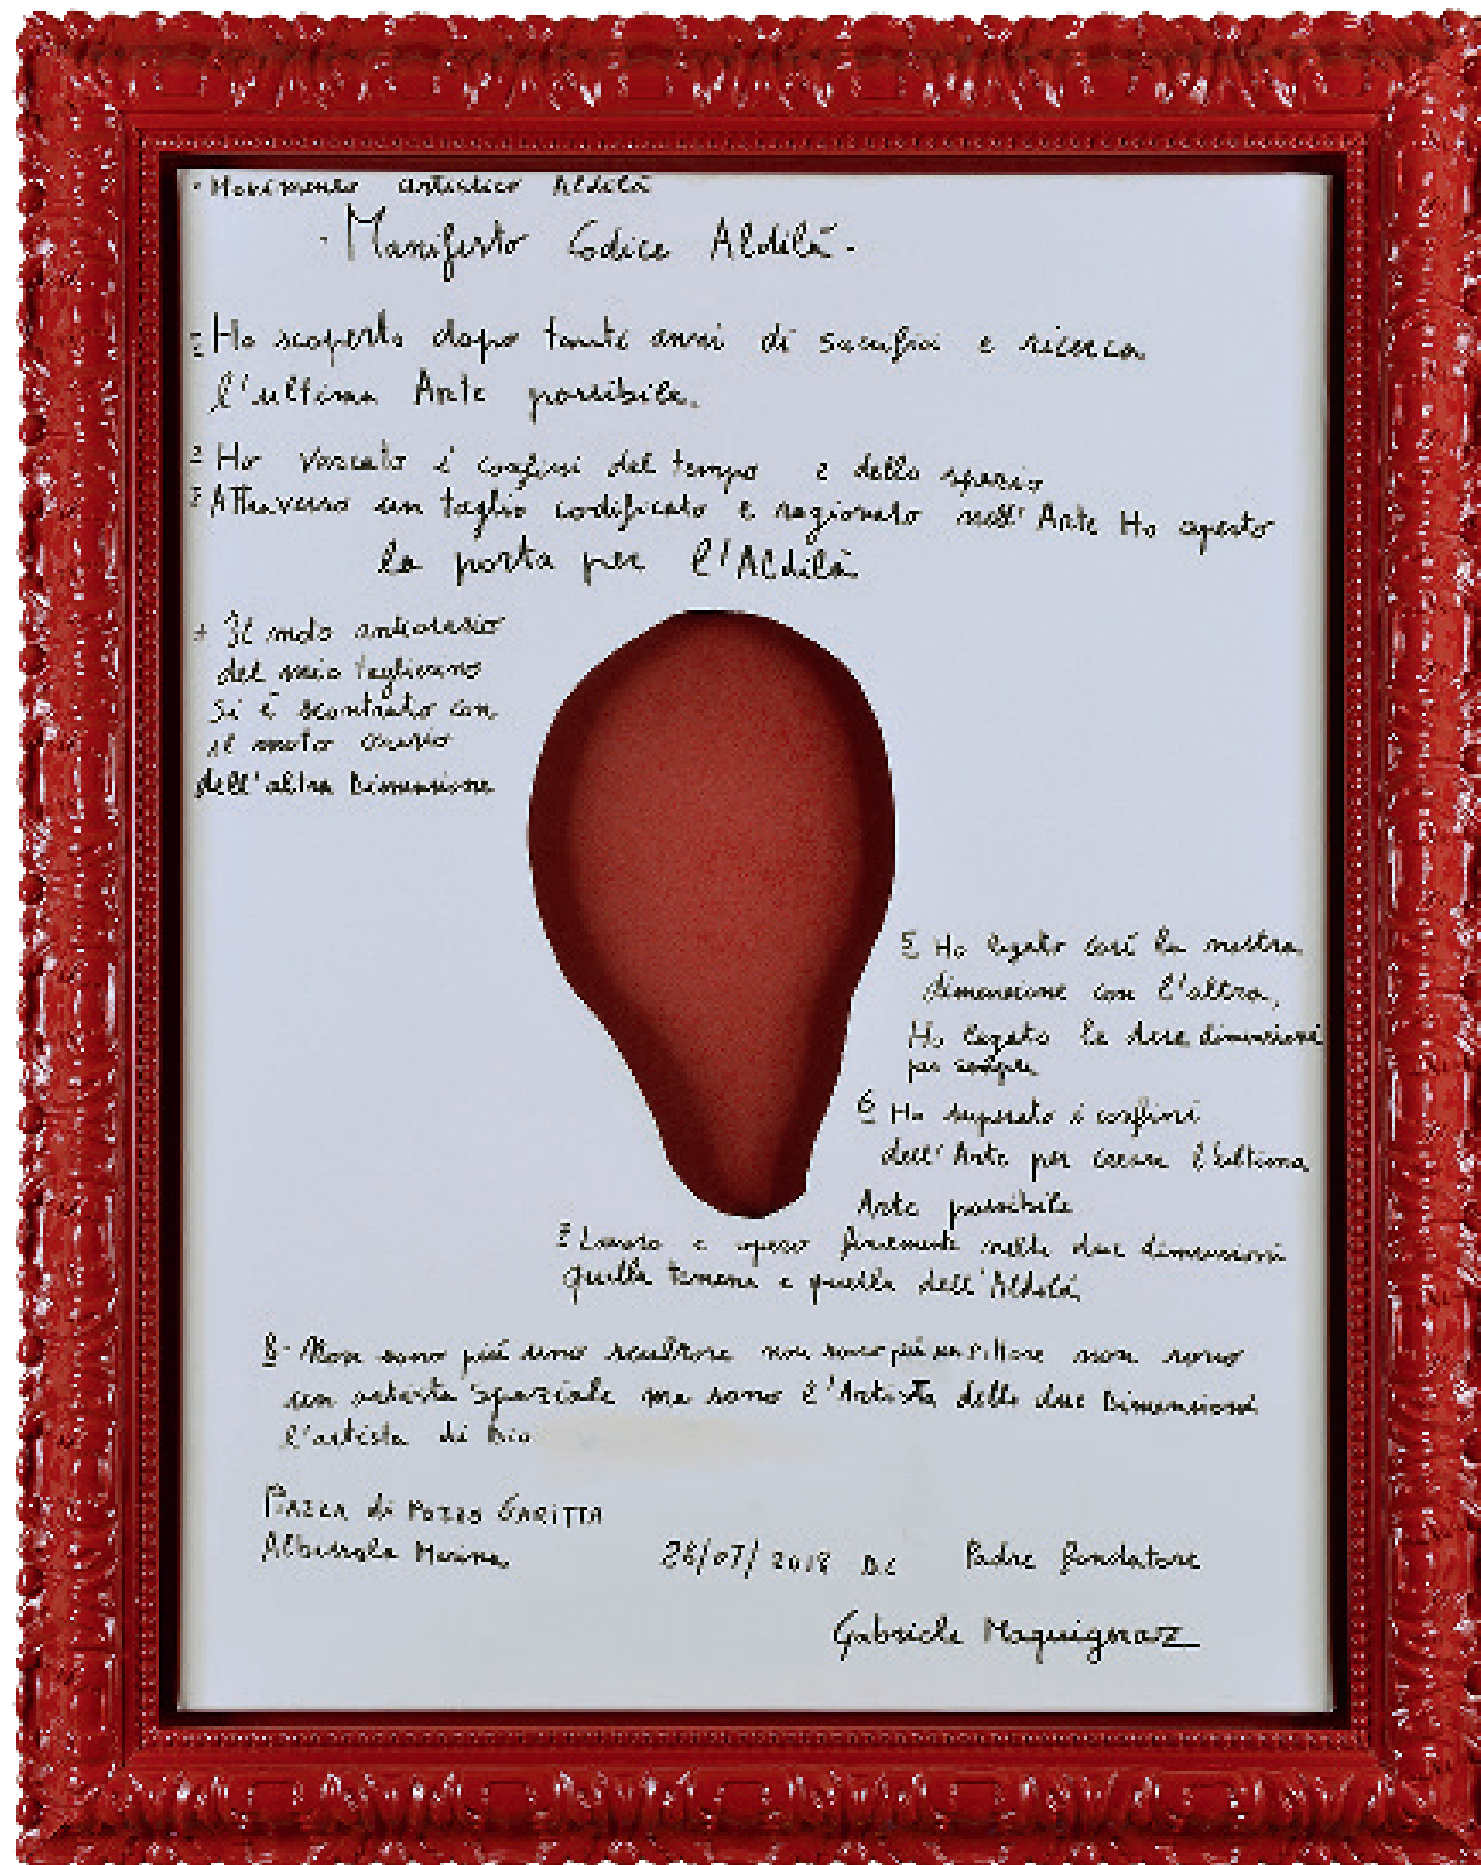 - Movimento artistico Aldilà
- Manifesto Codice Aldilà -
1 Ho scoperto dopo tanti anni di sacrifici e ricerca
l'ultima Arte possibile.
2 Ho varcato i confini del tempo e dello spazio
3 Attraverso un taglio codificato e ragionato nell'Arte Ho aperto
la porta per l'Aldilà
4 Il moto antiorario
del mio taglierino
si è scontrato con
il moto orario
dell'altra Dimensione
5 Ho legato così la nostra
dimensione con l'altra,
Ho legato le due dimensioni
per sempre
6 Ho superato i confini
dell'Arte per creare l'ultima
Arte possibile
7 Lavoro e opero nelle due dimensioni
quella terrena e quella dell'Aldilà
8- Non sono più uno scultore non sono più un Pittore non sono
un artista spaziale ma sono l'Artista delle due Dimensioni
l'artista di Dio
Piazza di Pozzo Garitta
Albissola Marina
26/07/2018 DC Padre fondatore
Gabriele Maquignaz